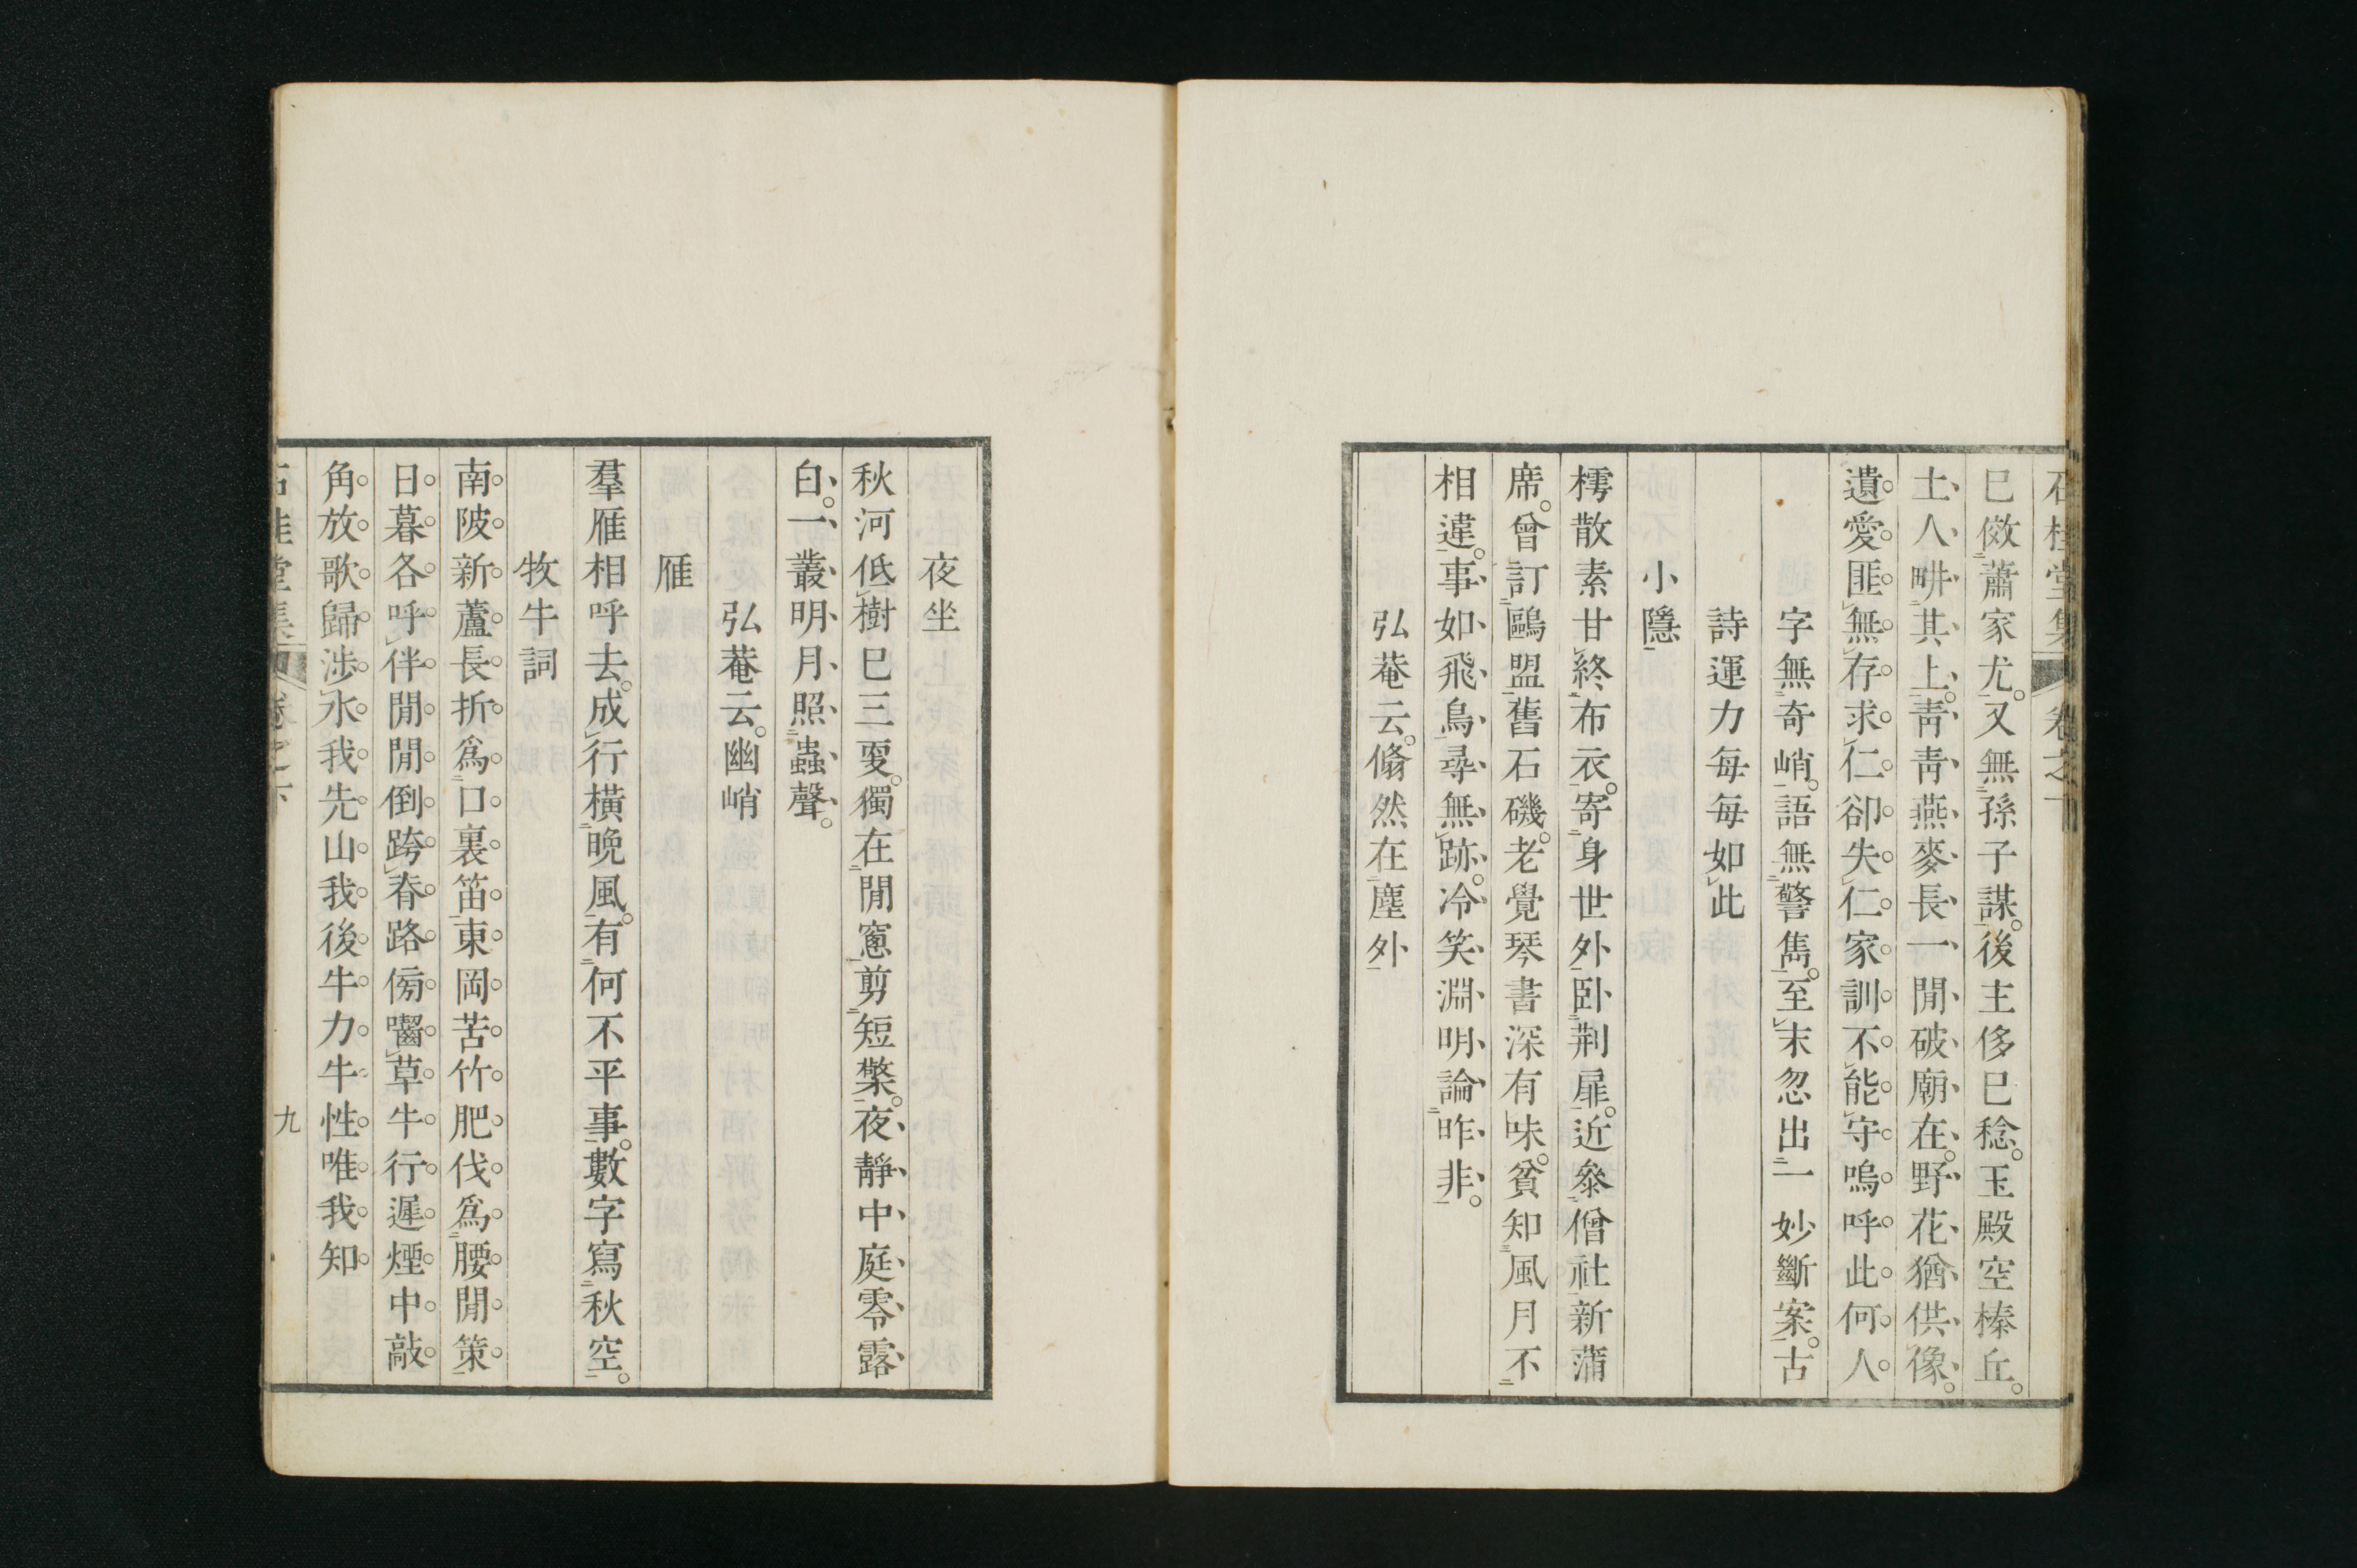 石桂堂集 卷之下
巳傚蕭家尤。又無孫子謀。後主侈巳稔。玉殿空榛丘。
土人畊其上。靑靑燕麥長一閒破廟在。野花猶供像。
遺愛匪無存求仁卻失仁家訓不能守嗚呼此何人
字無奇峭。語無警雋。至末忽出一妙斷案。古
詩運力每每如此
小隱
樗散素甘終布衣。寄身世外臥荆扉。近參僧社新蒲
席。曾訂鷗盟舊石磯。老覺琴書深有味。貧知風月不
相違。事如飛鳥尋無跡。冷笑淵明論昨非。
弘菴云。翛然在塵外
夜坐
秋河低樹巳三更。獨在閒窻剪短檠。夜靜中庭零露
白。一叢明月照蟲聲。
弘菴云。幽峭
雁
羣雁相呼去。成行橫晚風。有何不平事。數字寫秋空。
牧牛詞
南陂新蘆長折爲口裏笛東岡苦竹肥伐爲腰閒策
日暮各呼伴閒閒倒跨脊路傍嚙草牛行遲煙中敲
角放歌歸涉水我先山我後牛力牛性唯我知
石桂堂集 卷之下 九